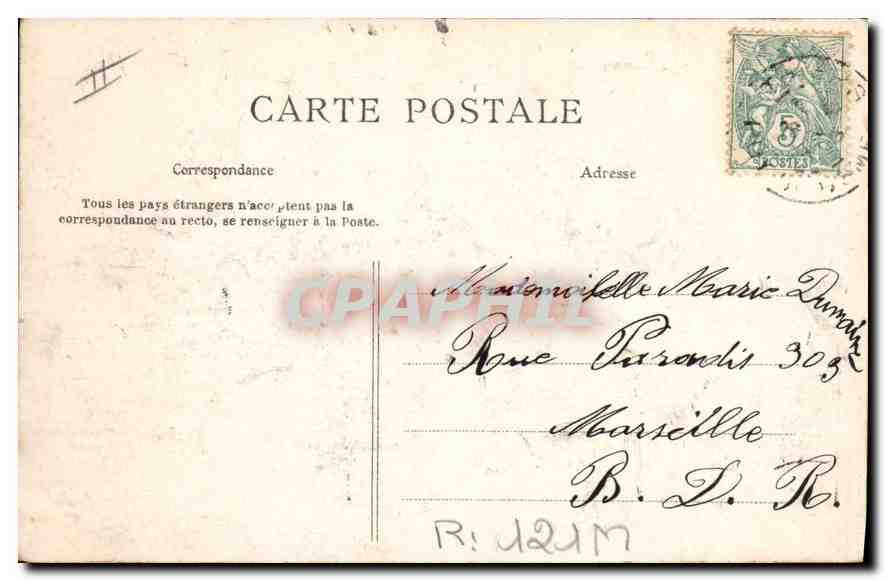 CARTE POSTALE
Correspondance
Adresse
Tous les pays étrangers n'acceptent pas la
correspondance au recto, se renseigner à la Poste.
5
POSTES
CPAPHIL
Mademoiselle Marie Dumaine
Rue Paradis 303
Marseille
B. D. R.
R: 121M